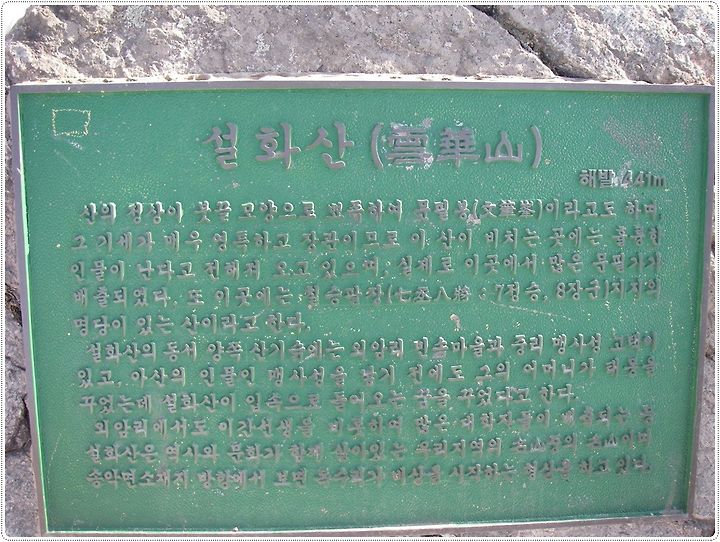 설화산(雪華山)
해발 441m
산의 정상이 붓끝 모양으로 뾰족하여 문필봉(文筆峯)이라고도 하다.
그 기세가 매우 영특하고 장관이므로 이 산이 비치는 곳에는 훌륭한
인물이 난다고 전해져 오고 있으며, 실제로 이곳에서 많은 문필가가
배출되었다. 또 이곳에는 칠승팔장(七丞八將 : 7정승, 8장군)지지의
명당이 있는 산이라고 한다.
설화산의 동서 양쪽 산기슭에는 외암리 민속마을과 중리 맹사성 고택이
있고, 아산의 인물인 맹사성을 낳기 전에도 그의 어머니가 태몽을
꾸었는데 설화산이 입속으로 들어오는 꿈을 꾸었다고 한다.
외암리에서도 이간선생을 비롯하여 많은 대학자들이 배출되는 등
설화산은 역사와 문화가 함께 살아있는 우리지역의 名山중의 名山이며
송악면소재지 방향에서 보면 독수리가 비상을 시작하는 형상을 하고 있다.